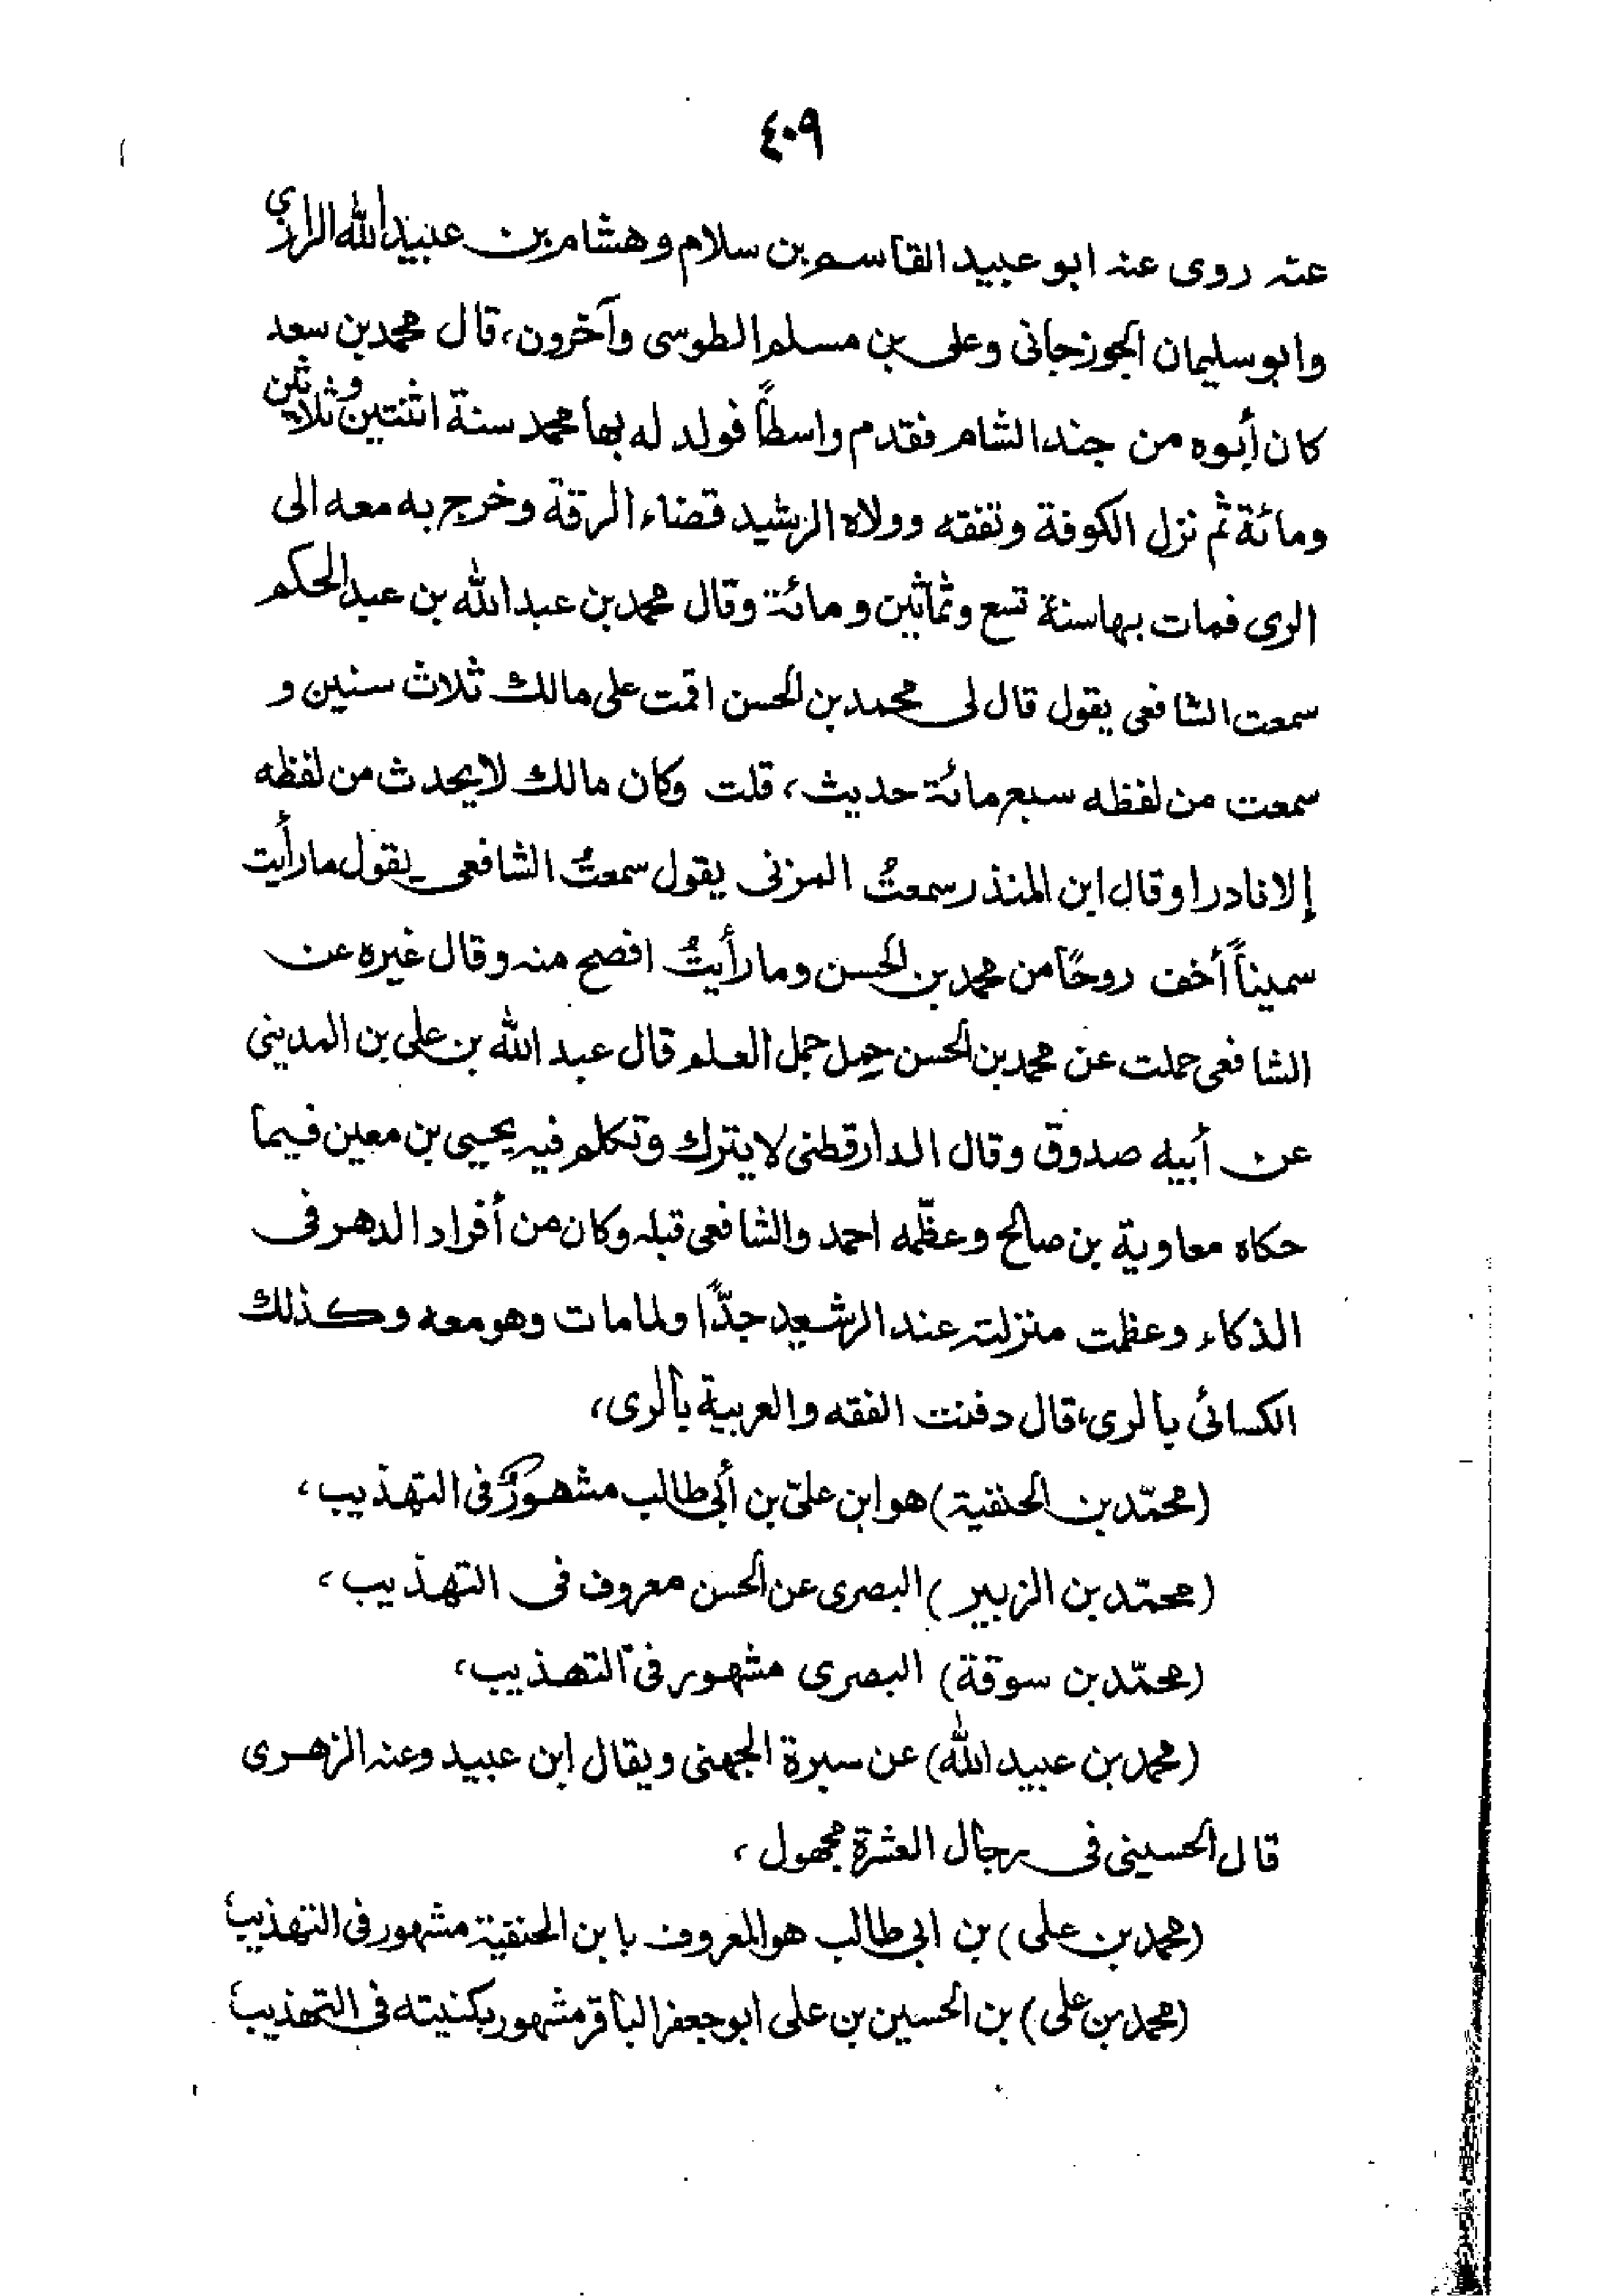 ٤٠٩
عنه روى عنه ابو عبيد القاسم بن سلام وهشام بن عبيد الله الرازي
وابو سليمان الجوزجانى وعلى بن مسلم الطوسى وآخرون، قال محمد بن سعد
كان أبوه من جند الشام فقدم واسطاً فولد له بها محمد سنة اثنتين وثلاثين
ومائة ثم نزل الكوفة وتفقه وولاه الرشيد قضاء الرقة وخرج به معه الى
الرى فمات بها سنة تسع وثمانين ومائة وقال محمد بن عبد الله بن عبد الحكم
سمعت الشافعى يقول قال لى محمد بن الحسن اقمت على مالك ثلاث سنين و
سمعت من لفظه سبع مائة حديث، قلت وكان مالك لا يحدث من لفظه
إلا نادرا وقال ابن المنذر سمعتُ المزنى يقول سمعتُ الشافعى يقول ما رأيت
سميناً أخف روحًا من محمد بن الحسن وما رأيتُ افصح منه وقال غيره عن
الشافعى حملت عن محمد بن الحسن حِمل جمل العلم قال عبد الله بن على بن المدينى
عن أبيه صدوق وقال الدارقطنى لا يترك وتكلم فيه يحيى بن معين فيما
حكاه معاوية بن صالح وعظّمه احمد والشافعى قبله وكان من أفراد الدهر فى
الذكاء وعظمت منزلته عند الرشيد جدًّا ولما مات وهو معه وكذلك
الكسائى بالرى، قال دفنت الفقه والعربية بالرى،
(محمّد بن الحنفية) هو ابن علىّ بن أبى طالب مشهورٌ فى التهذيب،
(محمّد بن الزبير) البصرى عن الحسن معروف فى التهذيب،
(محمّد بن سوقة) البصرى مشهور فى التهذيب،
(محمد بن عبيد الله) عن سبرة الجهنى ويقال ابن عبيد وعنه الزهرى
قال الحسينى فى رجال العشرة مجهول،
(محمد بن على) بن ابى طالب هو المعروف بابن الحنفية مشهور فى التهذيب،
(محمد بن على) بن الحسين بن على ابو جعفر الباقر مشهور بكنيته فى التهذيب،